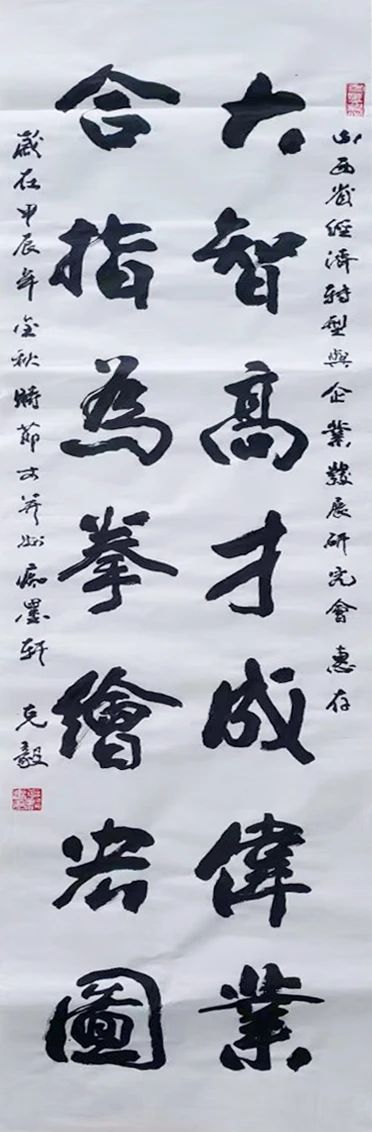 山西省經濟轉型與企業發展研究會 惠存
大智高才成偉業
合指為拳繪宏圖
歲在甲辰年金秋時節于并州痴墨軒 克毅